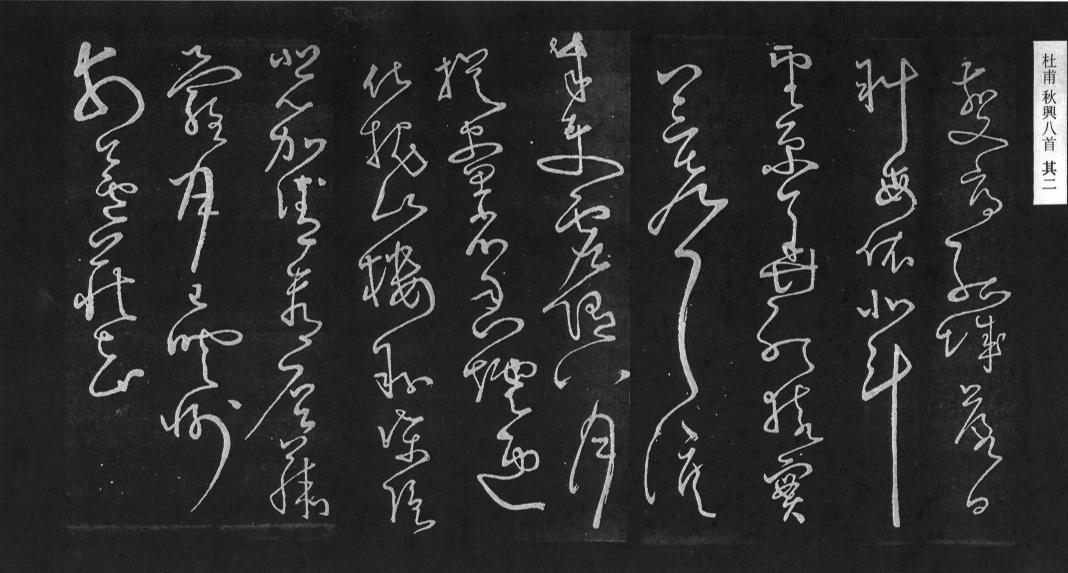 杜甫 秋興八首 其二
夔府孤城落日
斜每依北斗
望京華聽猿實
下三聲淚
奉使虛隨八月
槎畫省香爐違
伏枕山樓粉堞隱
悲笳請看石上藤
蘿月已映洲
前蘆荻花